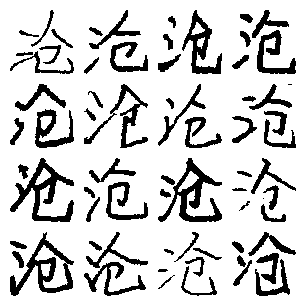 沧沧沧沧
沧沧沧沧
沧沧沧沧
沧沧沧沧